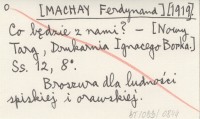 [MACHAY Ferdynand] [1919]
Co będzie z nami? – [Nowy
Targ, Drukarnia Ignacego Borka.]
Ss. 12, 8°.
Broszura dla ludności
spiskiej i orawskiej.